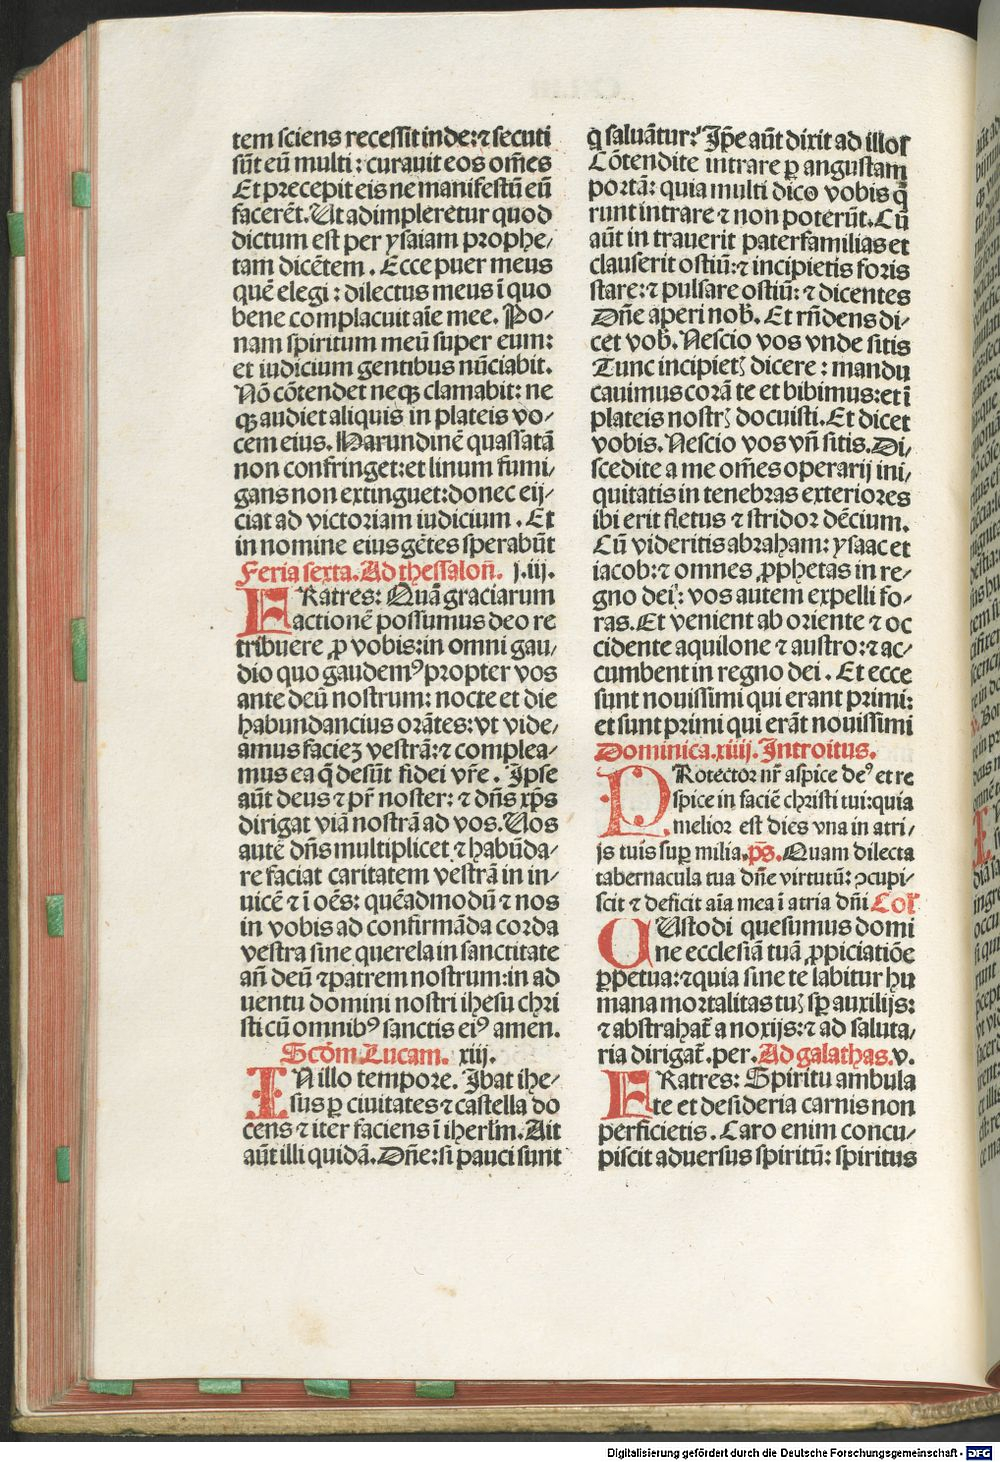 tem sciens recessit inde: ⁊ secuti
sūt eū multi: curauit eos om̄es
Et precepit eis ne manifestū eū
facerēt. Ut adimpleretur quod
dictum est per ysaiam prophe-
tam dicētem. Ecce puer meus
quē elegi: dilectus meus ī quo
bene complacuit aīe mee. Po-
nam spiritum meū super eum:
et iudicium gentibus nūciabit.
Nō cōtendet neqꝫ clamabit: ne
qꝫ audiet aliquis in plateis vo-
cem eius. Harundinē quassatā
non confringet: et linum fumi-
gans non extinguet: donec eij-
ciat ad victoriam iudicium. Et
in nomine eius gētes sperabūt
Feria sexta. Ad thessaloñ. j. iij.
FRatres: Quā graciarum
actionē possumus deo re
tribuere ꝓ vobis: in omni gau-
dio quo gaudemꝰ propter vos
ante deū nostrum: nocte et die
habundancius orātes: vt vide-
amus facieꝫ vestrā: ⁊ complea-
mus ea q̄ desūt fidei vr̄e. Ipse
aūt deus ⁊ pr̄ noster: ⁊ dn̄s xp̄s
dirigat viā nostrā ad vos. Vos
autē dn̄s multiplicet ⁊ habūda-
re faciat caritatem vestrā in in-
uicē ⁊ ī oēs: quēadmodū ⁊ nos
in vobis ad confirmāda corda
vestra sine querela in sanctitate
an̄ deū ⁊ patrem nostrum: in ad
uentu domini nostri ihesu chri
sti cū omnibꝰ sanctis eiꝰ amen.
Scd̄m Lucam. xiij.
IN illo tempore. Ibat ihe-
sus ꝑ ciuitates ⁊ castella do
cens ⁊ iter faciens ī iherl̄m. Ait
aūt illi quidā. Dn̄e: si pauci sunt
q saluātur? Ip̄e aūt dixit ad illos
Cōtendite intrare ꝑ angustam
portā: quia multi dico vobis q̄
runt intrare ⁊ non poterūt. Cū
aūt intrauerit paterfamilias et
clauserit ostiū: ⁊ incipietis foris
stare: ⁊ pulsare ostiū: ⁊ dicentes
Dn̄e aperi nob̄. Et rn̄dens di-
cet vob̄. Nescio vos vnde sitis
Tunc incipietꝭ dicere: mandu
cauimus corā te et bibimus: et ī
plateis nostrꝭ docuisti. Et dicet
vobis. Nescio vos vn̄ sitis. Di-
scedite a me om̄es operarij ini-
quitatis in tenebras exteriores
ibi erit fletus ⁊ stridor dēcium.
Cū videritis abraham: ysaac et
iacob: ⁊ omnes ꝓphetas in re-
gno dei: vos autem expelli fo-
ras. Et venient ab oriente ⁊ oc
cidente aquilone ⁊ austro: ⁊ ac-
cumbent in regno dei. Et ecce
sunt nouissimi qui erant primi:
et sunt primi qui erāt nouissimi
Dominica. xiiij. Introitus.
PRotector nr̄ aspice deꝰ et re
spice in faciē christi tui: quia
melior est dies vna in atri-
js tuis suꝑ milia. ps̄. Quam dilecta
tabernacula tua dn̄e virtutū: ꝯcupi-
scit ⁊ deficit aīa mea ī atria dn̄i Coll
CUstodi quesumus domi
ne ecclesiā tuā ꝓpiciatiōe
ꝑpetua: ⁊ quia sine te labitur hu
mana mortalitas tuꝭ sꝑ auxilijs:
⁊ abstrahat̄ a noxijs: ⁊ ad saluta-
ria dirigat̄. per. Ad galathas. v.
FRatres: Spiritu ambula
te et desideria carnis non
perficietis. Caro enim concu-
piscit aduersus spiritū: spiritus
Digitalisierung gefördert durch die Deutsche Forschungsgemeinschaft - DFG